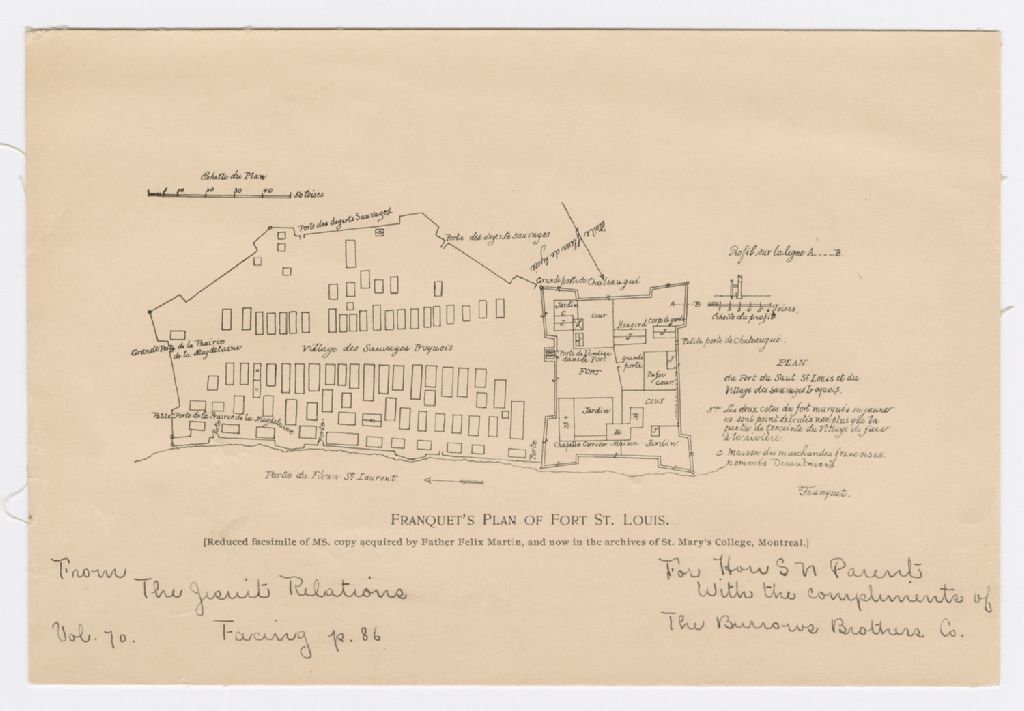 Echelle du Plan
10 20 30 40 50 toises
Porte des deserts Sauvages
Porte des deserts sauvages
Grande porte de Chateaugué
Profil sur la ligne A.....B.
A B
1 2 3 4 5 6 Toises.
Echelle du profil
Petite porte de Chateaugué.
Grande Porte de la Prairie
de la Magdelaine
Village des Sauvages Iroquois
Petite Porte de la Prairie de la Magdelaine
Porte
Porte
Porte
Jardin
Cour
Hangard
Corps de garde
dans le Fort
FORT
Grande
porte
Basse
cour
Cour
Jardin
Chapelle
Maison
Jardin
PLAN
du Fort du Saut St Louis et du
Village des Sauvages Iroquois.
Les deux cotés du fort marqués en jaune
ne sont point executés non plus que la
partie de l'enceinte du Village de face
à la rivière.
Maison des marchandes françoises
nommés Desauniers
Franquet.
Partie du Fleuve St Laurent
FRANQUET'S PLAN OF FORT ST. LOUIS.
[Reduced facsimile of MS. copy acquired by Father Felix Martin, and now in the archives of St. Mary's College, Montreal.]
From
The Jesuit Relations
Vol. 70. Facing p. 86
For Hon S N Parent
With the compliments of
The Burrows Brothers Co.